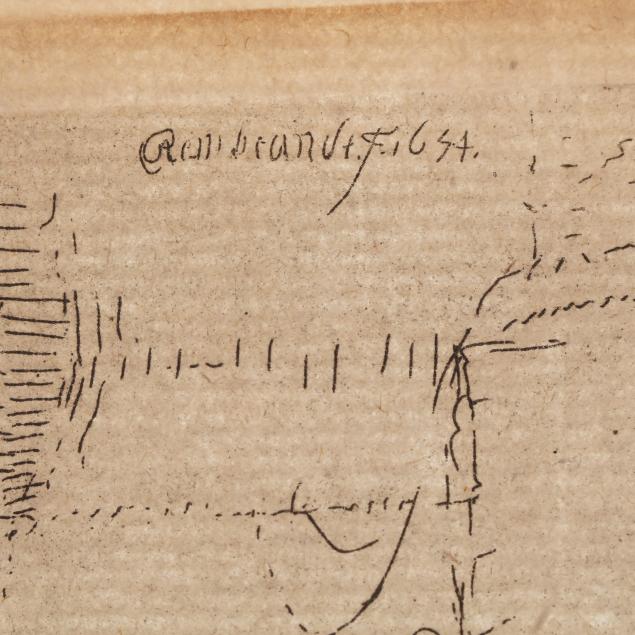 Rembrandt. F. 1654.